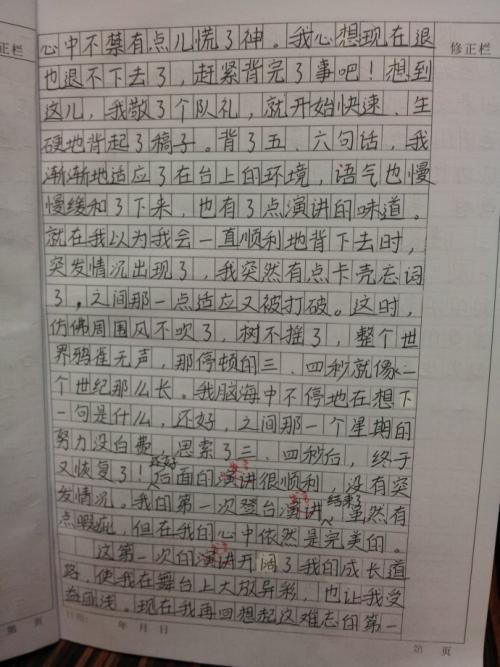 修正栏
正栏
心中不禁有点儿慌了神。我心想现在退
也退不下去了，赶紧背完了事吧！想到
这儿，我敬了个队礼，就开始快速、生
硬地背起了稿子。背了五、六句话，我
渐渐地适应了在台上的环境，语气也慢
慢缓和了下来，也有了点演讲的味道。
就在我以为我会一直顺利地背下去时，
突发情况出现了，我突然有点卡壳忘词
了，之间那一点适应又被打破。这时，
仿佛周围风不吹了，树不摇了，整个世
界鸦雀无声，那停顿的三、四秒就像一
个世纪那么长。我脑海中不停地在想下
一句是什么，还好，之间那一个星期的
努力没白费，思索了三、四秒后，终于
又恢复了！还好后面的演讲很顺利，没有突
发情况。我的第一次登台演讲结束了，虽然有
点瑕疵，但在我的心中依然是完美的。
这第一次的演讲开阔了我的成长道
路，使我在舞台上大放异彩，也让我受
益匪浅。现在我再回想起这难忘的第一
第 页
年 月 日
第 页